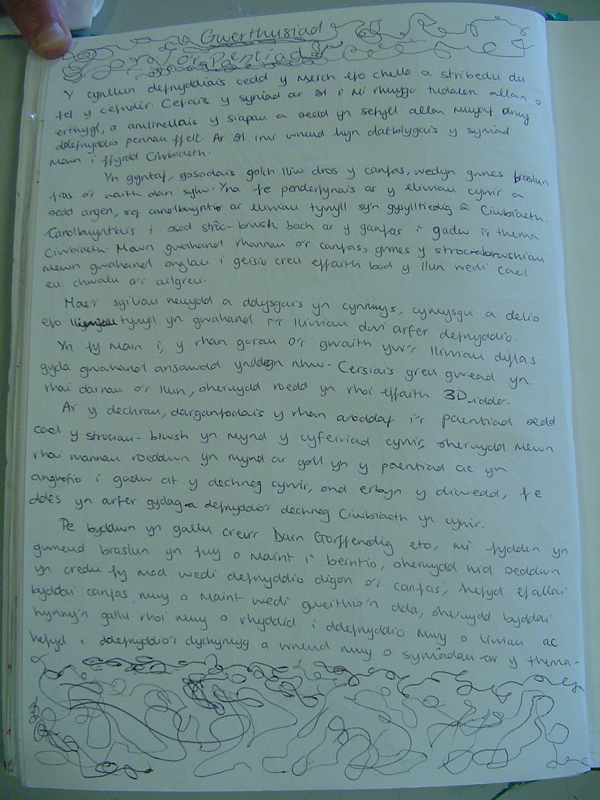 Gwerthusiad
o'r Paentiad
Y cynllun defnyddiais oedd y Merch efo chello a stribedu du
fel y cefndir. Cefais y syniad ar ôl i mi rhwygo tudalen allan o
erthygl, a amlinellais y siapau a oedd yn sefyll allan mwyaf drwy
ddefnyddio pennau ffelt. Ar ôl imi wneud hyn datblygais y syniad
mewn i ffyrdd Ciwbiaeth.
Yn gyntaf, gosodais golch lliw dros y canfas, wedyn gwnes braslun
fras o'r waith dan sylw. Yna fe penderfynais ar y lliwiau cywir a
oedd angen, sef canolbwyntio ar lliwiau tywyll sy'n gysylltiedig â Ciwbiaeth.
Canolbwyntiais i osod strôc-brwsh bach ar y ganfas i gadw i'r thema
Ciwbiaeth. Mewn gwahanol rhannau o'r canfas, gwnes y strociau brwshiau
mewn gwahanol onglau i geisio creu effaith bod y llun wedi cael
eu chwalu a'i ailgreu.
Mae'r sgiliau newydd a ddysgais yn cynnwys, cymysgu a delio
efo tywyll yn gwahanol i'r lliwiau dwi arfer defnyddio.
Yn fy marn i, y rhan gorau o'r gwaith yw'r lliwiau diflas
gyda gwahanol ansawdd ynddyn nhw. Ceisiais greu gwead yn
rhai darnau o'r llun, oherwydd roedd yn rhoi effaith 3D iddo.
Ar y dechrau, darganfodais y rhan anoddaf i'r paentiad oedd
cael y strociau-brwsh yn mynd y cyfeiriad cywir, oherwydd mewn
rhai mannau roeddwn yn mynd ar goll yn y paentiad ac yn
anghofio i gadw at y dechneg cywir, ond erbyn y diwedd, fe
ddes yn arfer gyda defnyddio'r dechneg Ciwbiaeth yn cywir.
Pe byddwn yn gallu creu'r Darn Gorffenedig eto, mi fyddwn yn
gwneud braslun yn fwy o maint i beintio, oherwydd nid oeddwn
yn credu fy mod wedi defnyddio digon o'r canfas, hefyd efallai
byddai canfas mwy o maint wedi gweithio'n dda, oherwydd byddai
hynny'n gallu rhoi mwy o rhyddid i ddefnyddio mwy o lliwiau ac
hefyd i ddefnyddio'r dychymyg a wneud mwy o syniadau ar y thema.